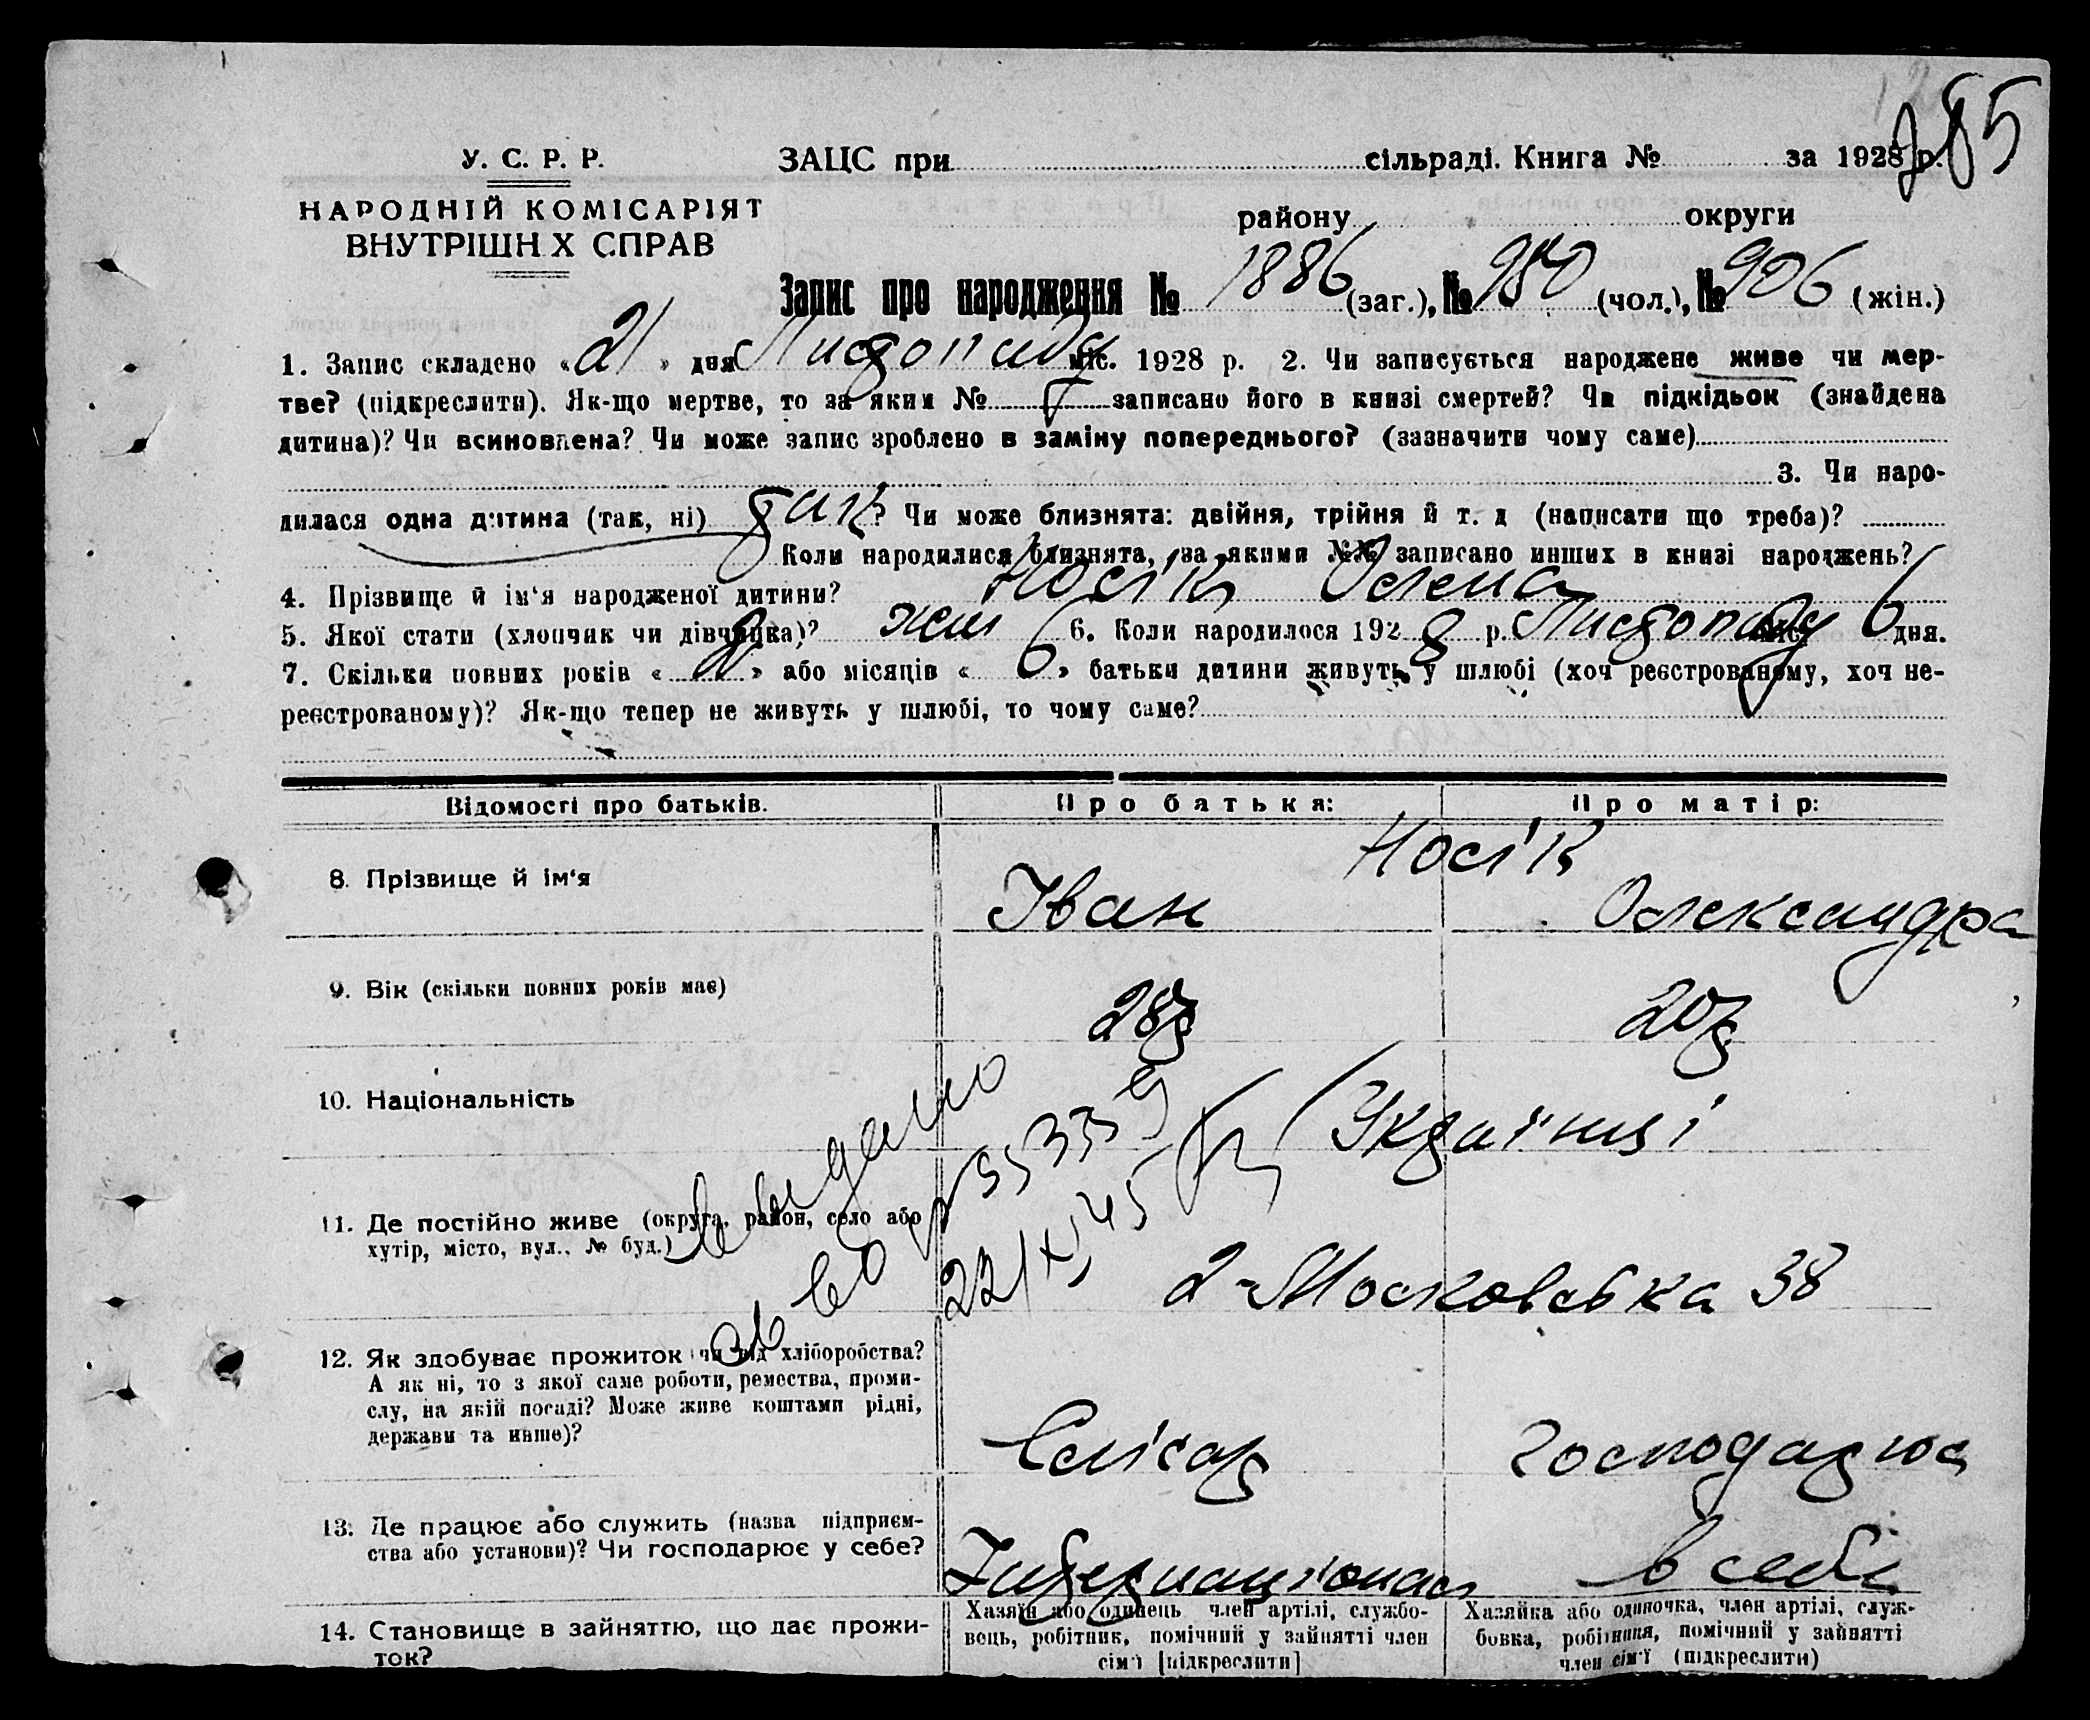 285
У. С. Р. Р.
ЗАЦС при сільраді. Книга № за 1928 р.
НАРОДНІЙ КОМІСАРІЯТ
району округи
ВНУТРІШН Х СПРАВ
Запис про народження № 1886 (заг.), № 980 (чол.), № 906 (жін.)
1. Запис складено «21» дня Листопаду міс. 1928 р. 2. Чи записується народжене живе чи мер-
тве? (підкреслити). Як-що мертве, то за яким № записано його в книзі смертей? Чи підкідьок (знайдена
дитина)? Чи всиновлена? Чи може запис зроблено в заміну попереднього? (зазначити чому саме)
3. Чи наро-
дилася одна дитина (так, ні) так? Чи може близнята: двійня, трійня й т. д (написати що треба)?
Коли народилися близнята, за якими №№ записано инших в книзі народжень?
4. Прізвище й ім'я народженої дитини? Носік Олена
5. Якої стати (хлопчик чи дівчинка)? жін 6. Коли народилося 1928 р. Листопаду міс. 6 дня.
7. Скільки повних років «2» або місяців «6» батьки дитини живуть у шлюбі (хоч реєстрованому, хоч не-
реєстрованому)? Як-що тепер не живуть у шлюбі, то чому саме?
Відомості про батьків. Про батька: Про матір:
Носік
8. Прізвище й ім'я Іван Олександра
9. Вік (скільки повних років має) 28р 20р
10. Національність Українці
видано
11. Де постійно живе (округа, район, село або
хутір, місто, вул., № буд.) 2-Московська 38
12. Як здобуває прожиток чи від хліборобства?
А як ні, то з якої саме роботи, ремества, проми-
слу, на якій посаді? Може живе коштами рідні,
держави та инше)? Слісар Господарюа
13. Де працює або служить (назва підприєм-
ства або установи)? Чи господарює у себе? Інтернаціонал в себе
14. Становище в зайняттю, що дає прожи-
ток?
Хазяїн або одинець член артілі, службо-
вець, робітник, помічний у зайнятті член
сім'ї [підкреслити]
Хазяйка або одиночка, член артілі, служ-
бовка, робітниця, помічний у зайнятті
член сім'ї (підкреслити)